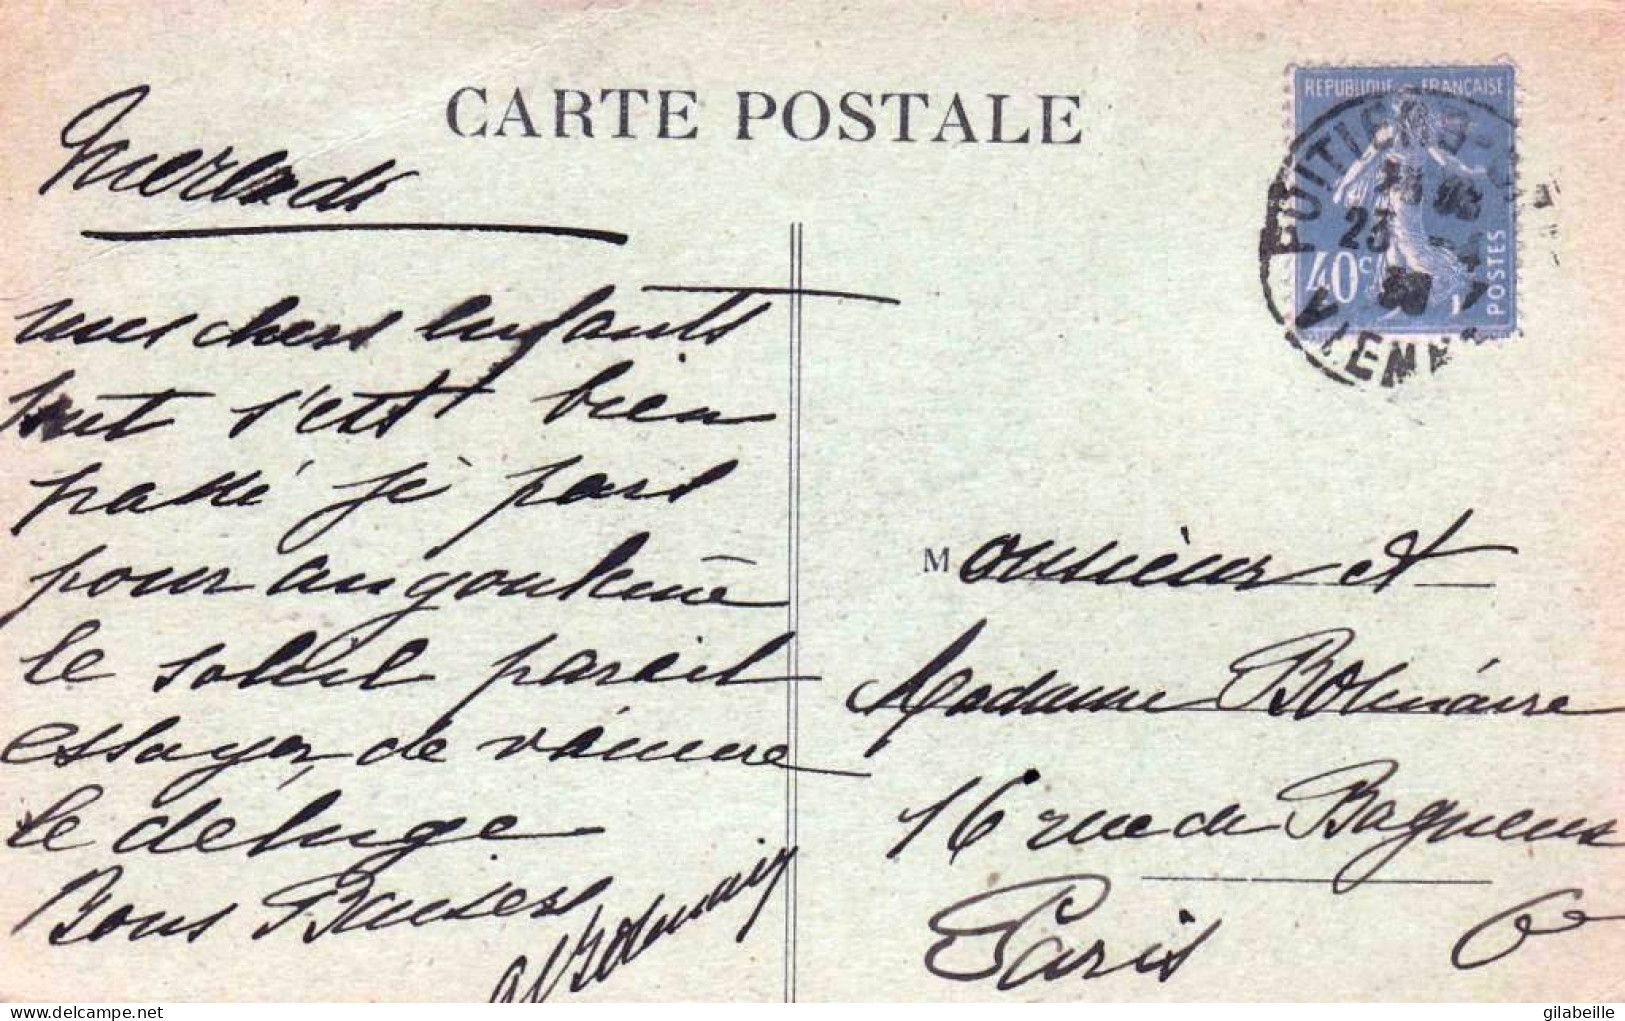 CARTE POSTALE
mes chers enfants
tout s'est bien
passé je pars
pour angoulème
le soleil parait
essayer de vaincre
le déluge
Bons Baisers
REPUBLIQUE FRANÇAISE
40c
POSTES
POITIERS
23 -4
VIENNE
Monsieur et
Madame
16 rue de Bagneux
Paris 6
gilabeille